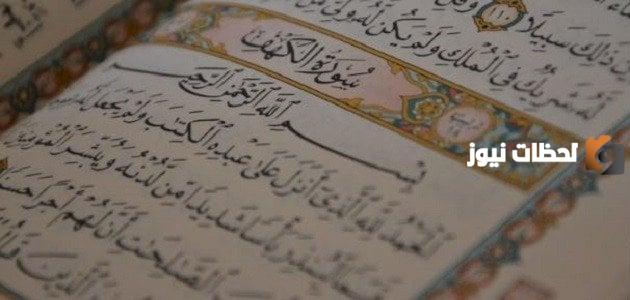 بَيْنَ ذَٰلِكَ سَبِيلًا ١١٠ وَقُلِ
لَّهُ شَرِيكٌ فِي الْمُلْكِ وَلَمْ يَكُن لَّهُ وَلِيٌّ مِّنَ
سُورَةُ الْكَهْفِ
بِسْمِ اللَّهِ الرَّحْمَٰنِ الرَّحِيمِ
الْحَمْدُ لِلَّهِ الَّذِي أَنزَلَ عَلَىٰ عَبْدِهِ الْكِتَٰبَ وَلَمْ يَجْعَل لَّهُ
قَيِّمًا لِّيُنذِرَ بَأْسًا شَدِيدًا مِّن لَّدُنْهُ وَيُبَشِّرَ الْمُؤْمِنِينَ
الصَّٰلِحَٰتِ أَنَّ لَهُمْ أَجْرًا حَسَنًا
الَّذِينَ قَالُوا
لحظات نيوز